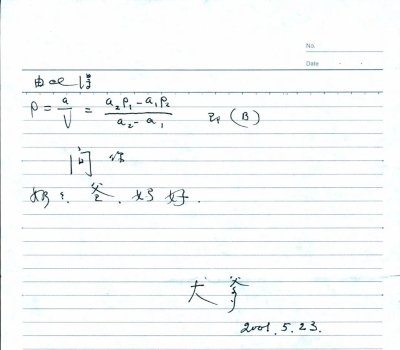 No.
Date
由 得
P = a/V = (a₂P₁ - a₁P₂)/(a₂ - a₁) 即 (B)
问
爹. 妈 好.
大爹
2001. 5. 23.